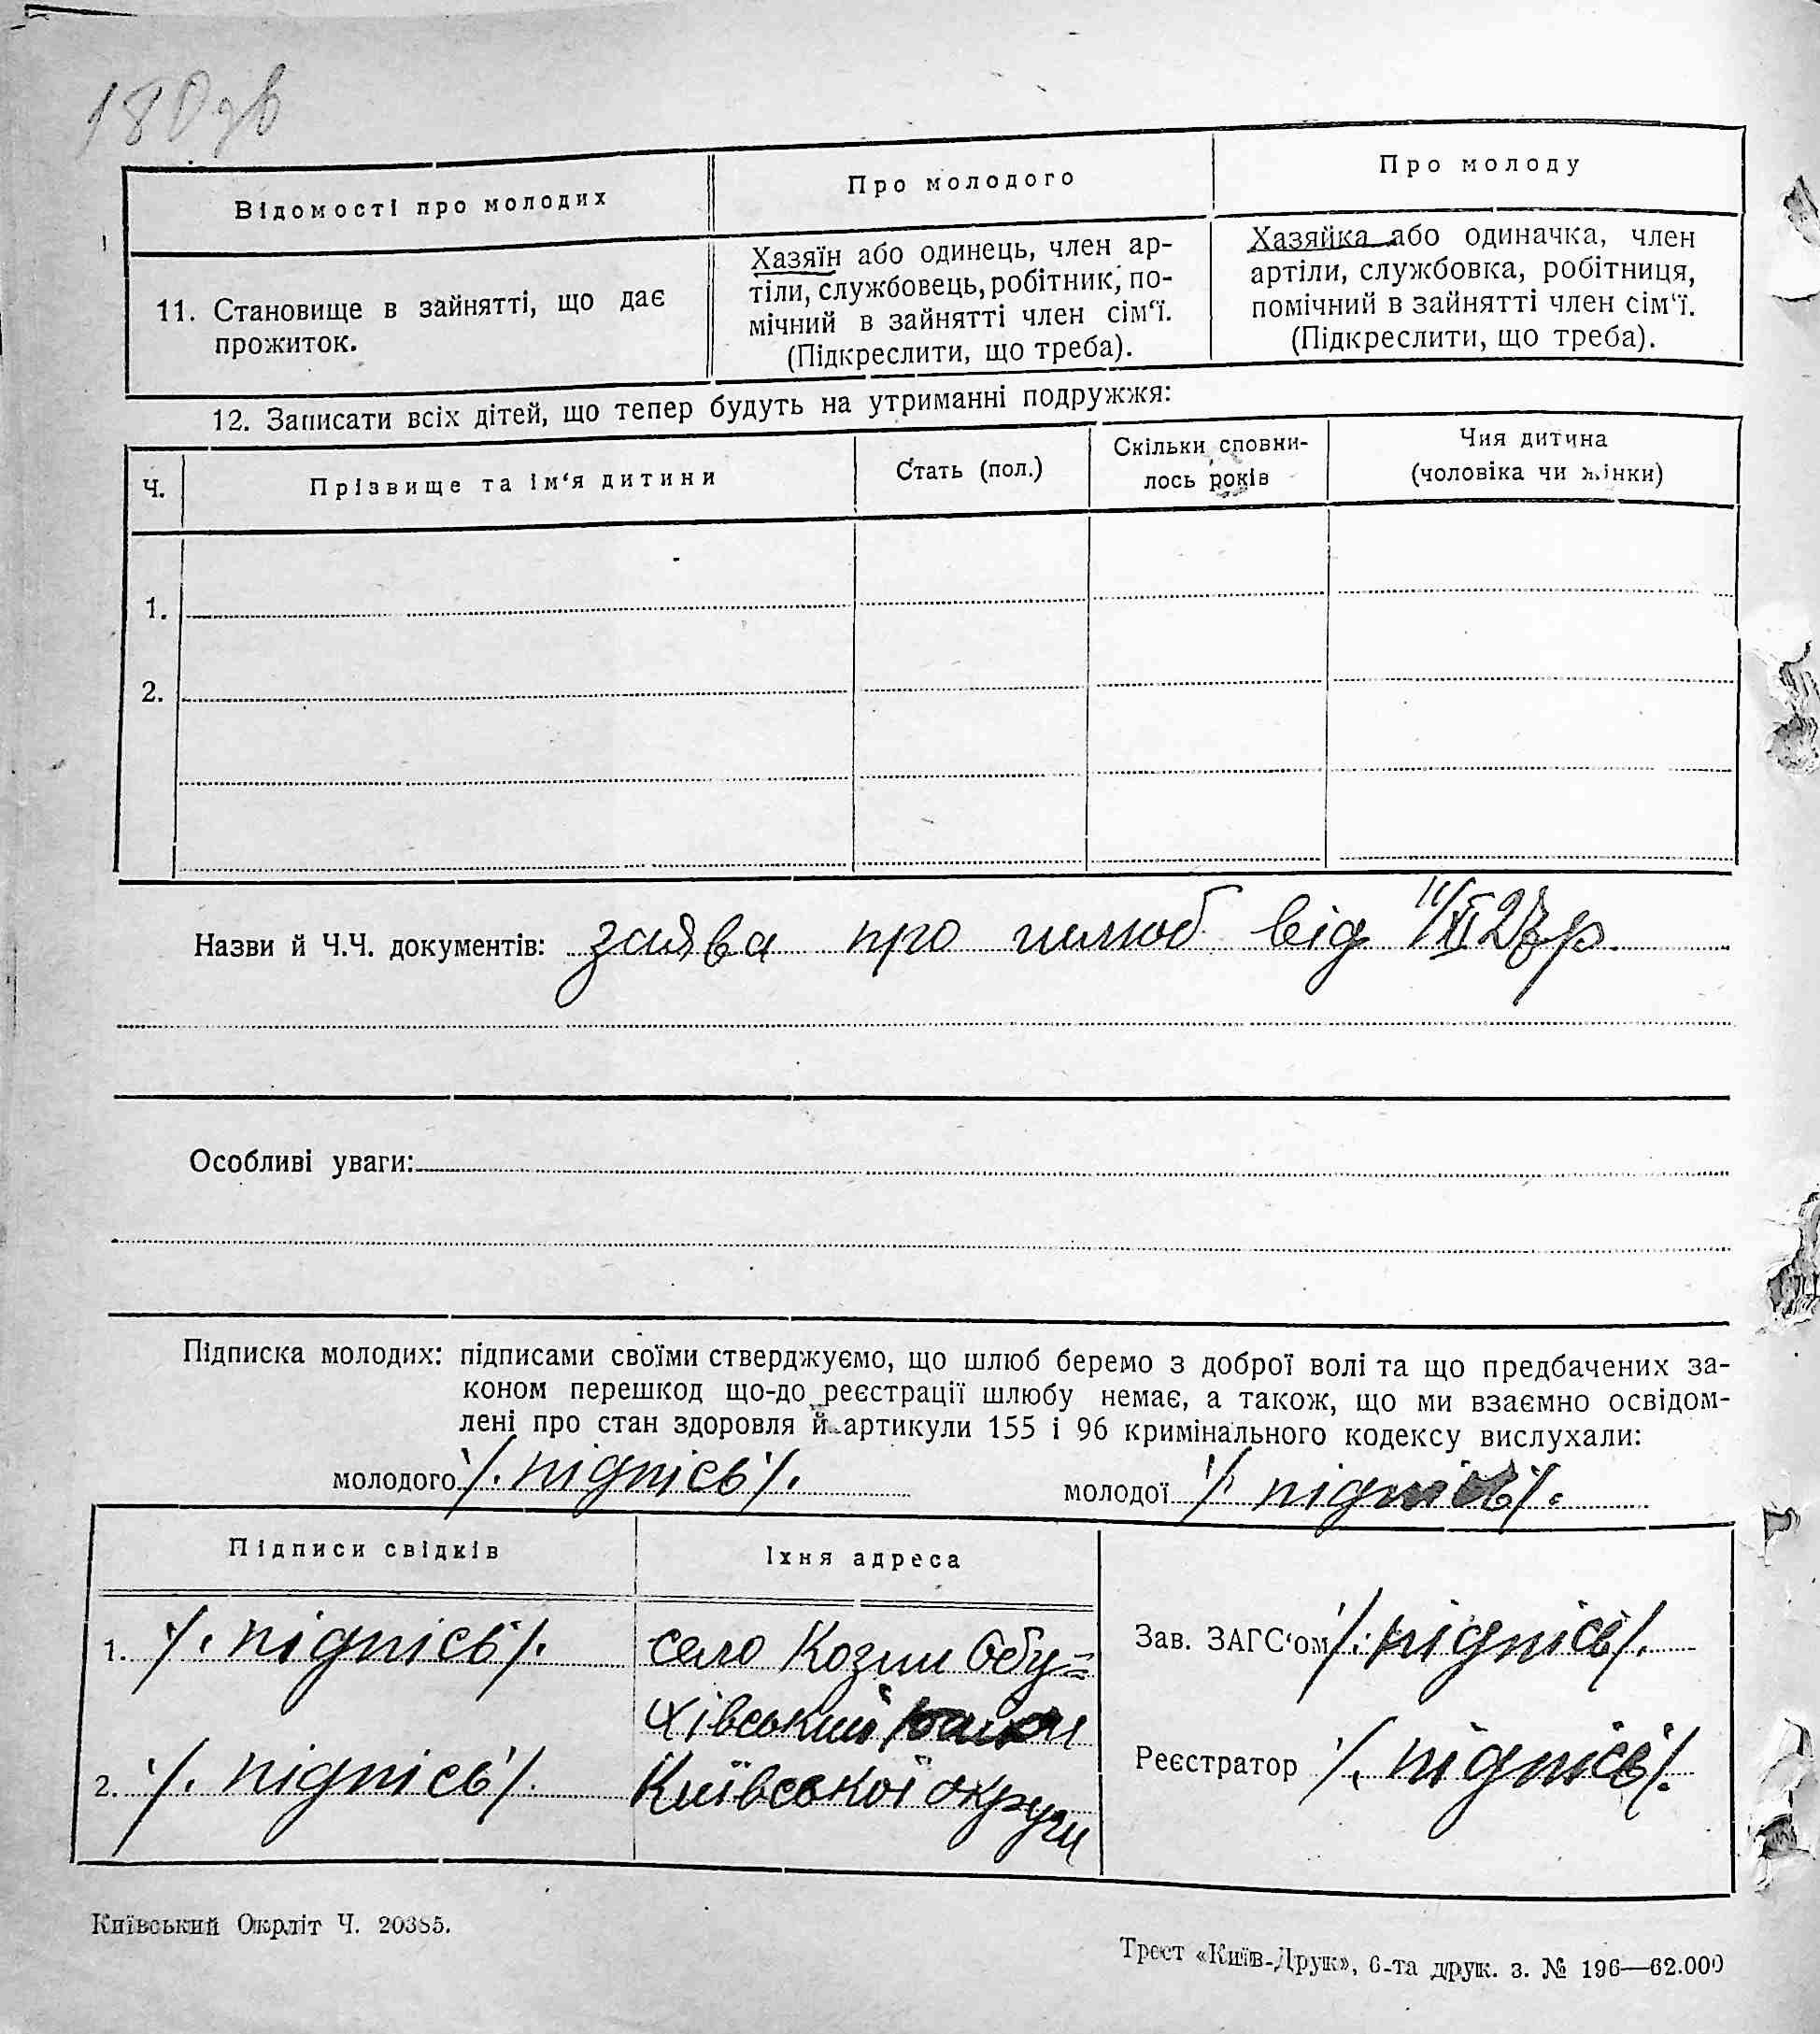 180 зв
Відомості про молодих
Про молодого
Про молоду
11. Становище в зайнятті, що дає
прожиток.
Хазяїн або одинець, член ар-
тіли, службовець, робітник, по-
мічний в зайнятті член сім‘ї.
(Підкреслити, що треба).
Хазяйка або одиначка, член
артіли, службовка, робітниця,
помічний в зайнятті член сім‘ї.
(Підкреслити, що треба).
12. Записати всіх дітей, що тепер будуть на утриманні подружжя:
Ч.
Прізвище та ім‘я дитини
Стать (пол.)
Скільки сповни-
лось років
Чия дитина
(чоловіка чи жінки)
1.
2.
Назви й Ч.Ч. документів: заява про шлюб від 11/XI 27 р.
Особливі уваги:
Підписка молодих: підписами своїми стверджуємо, що шлюб беремо з доброї волі та що предбачених за-
коном перешкод що-до реєстрації шлюбу немає, а також, що ми взаємно освідом-
лені про стан здоровля й артикули 155 і 96 кримінального кодексу вислухали:
молодого /. підпісь /. молодої / підпісь /.
Підписи свідків
Їхня адреса
1. /. підпісь /.
2. /. підпісь /.
село Козин Обу=
хівський район
Київської округи
Зав. ЗАГС‘ом /. підпісь /.
Реєстратор /. підпісь /.
Київський Окрліт Ч. 20385.
Трест «Київ-Друк», 6-та друк. з. № 196—62.000